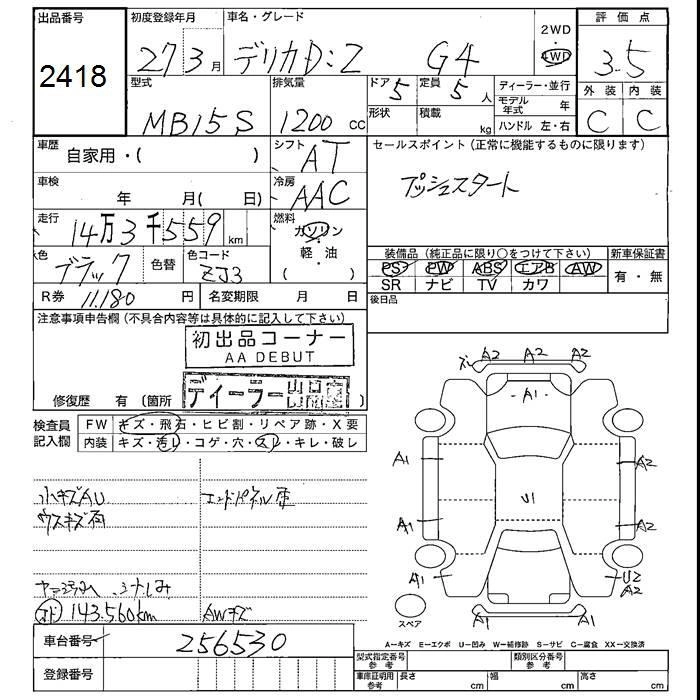 出品番号 初度登録年月 車名・グレード 2WD 評価点
2418 27 3月 デリカD:2 G4 4WD 3.5
型式 排気量 ドア 5 定員 5人 ディーラー・並行 外装 内装
MB15S 1200cc 形状 積載 kg モデル年式 年 C C
ハンドル 左・右
車歴 自家用・( ) シフト AT セールスポイント(正常に機能するものに限ります)
車検 年 月( 日) 冷房 AAC プッシュスタート
走行 14万3千559km 燃料 ガソリン・軽・油
色 ブラック 色替 色コード ZJ3 装備品(純正品に限り○をつけて下さい) 新車保証書
PS PW ABS エアB AW 有・無
SR ナビ TV カワ
R券 11.180円 名変期限 月 日 後日品
注意事項申告欄(不具合内容等は具体的に記入して下さい)
初出品コーナー
AA DEBUT
ディーラー出品車
修復歴 有(箇所 )
検査員記入欄 FW キズ・飛石・ヒビ割・リペア跡・X要
内装 キズ・汚レ・コゲ・穴・スレ・キレ・破レ
小キズAU エンドパネル
ウスキズ
143.560km AWキズ
車台番号 256530
登録番号
A2 A2 A2
A1
A1 A2
U1
A1 A2
A1 U2
A2
A1 A1
スペア
A−キズ E−エクボ U−凹み W−補修跡 S−サビ C−腐食 XX−交換済
型式指定番号 参考 類別区分番号 参考
車庫証明用 参考 長さ cm 幅 cm 高さ cm